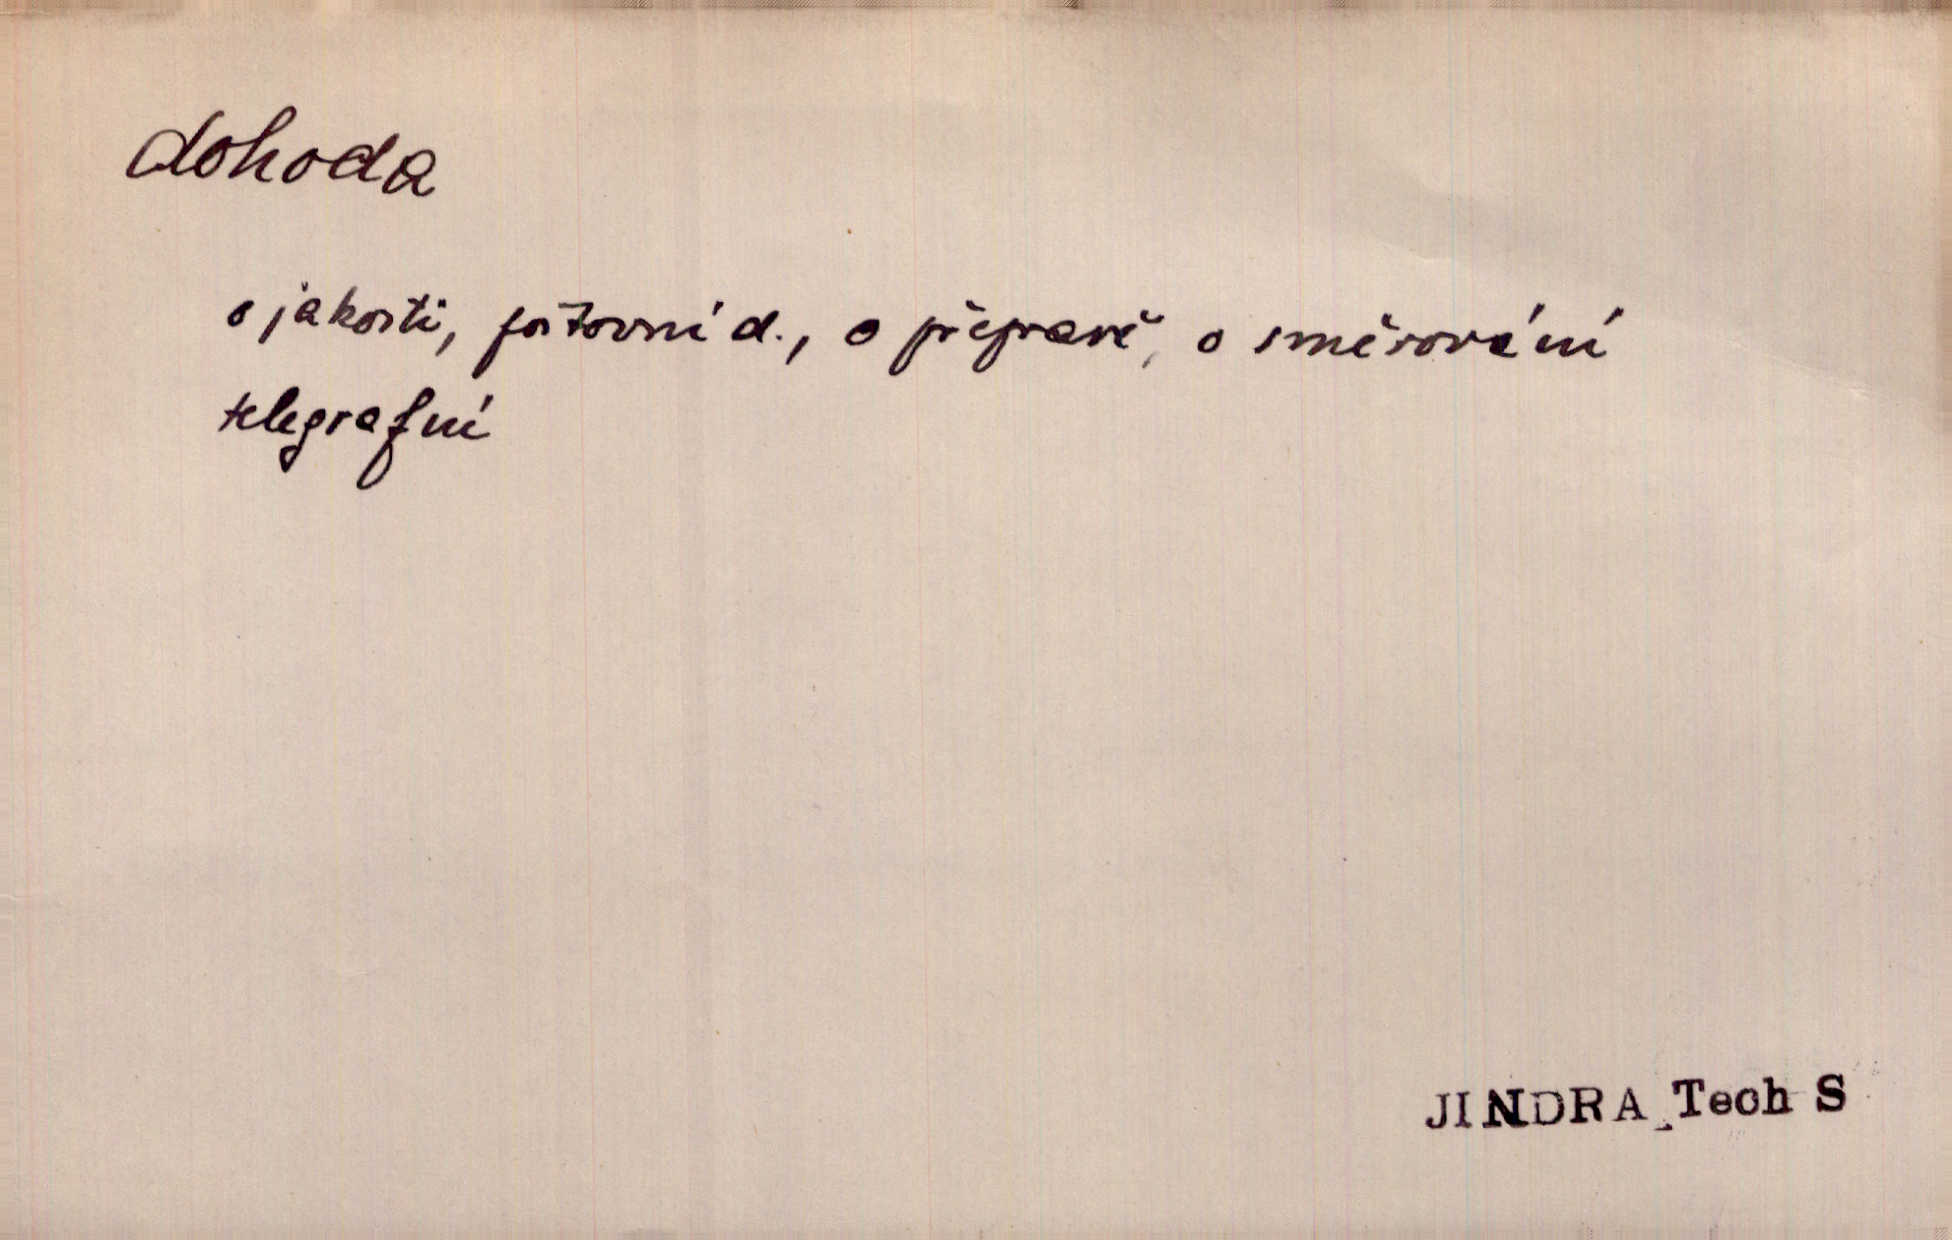 dohoda
o jakosti, poštovní d., o přepravě, o směrování
telegrafní
JINDRA Tech S